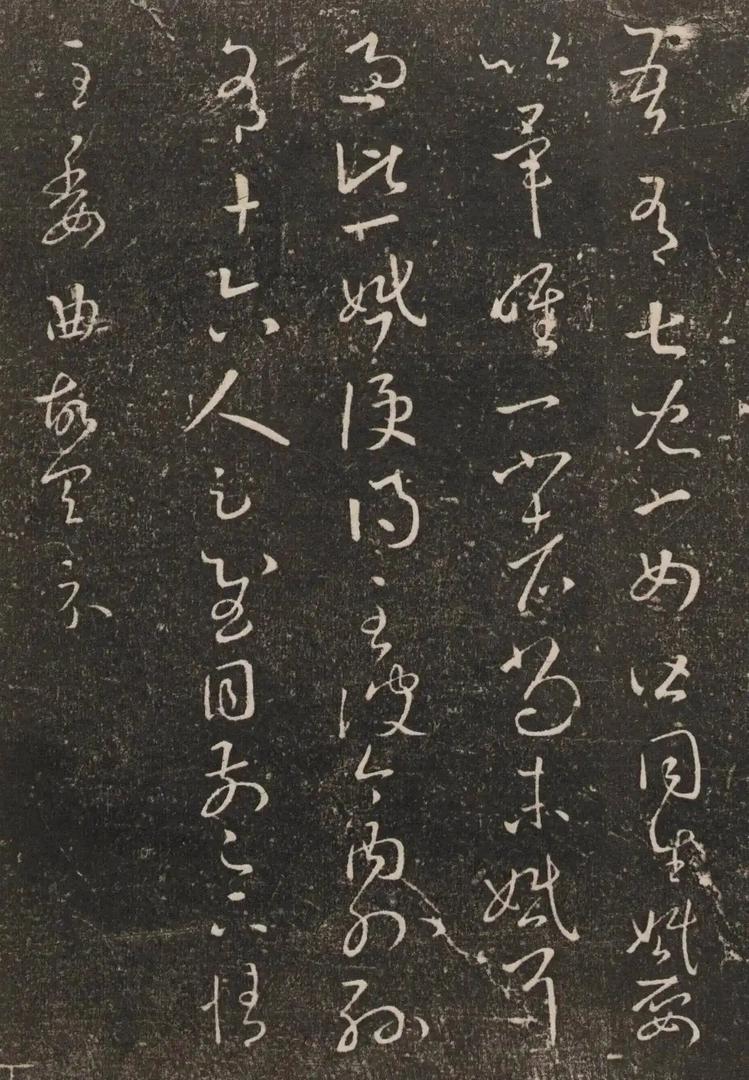 吾有七兒一女皆同生婚娶
以畢唯一小者尚未婚耳
過此一婚便得至彼今內外孫
有十六人足慰目前足下情
至委曲故具示